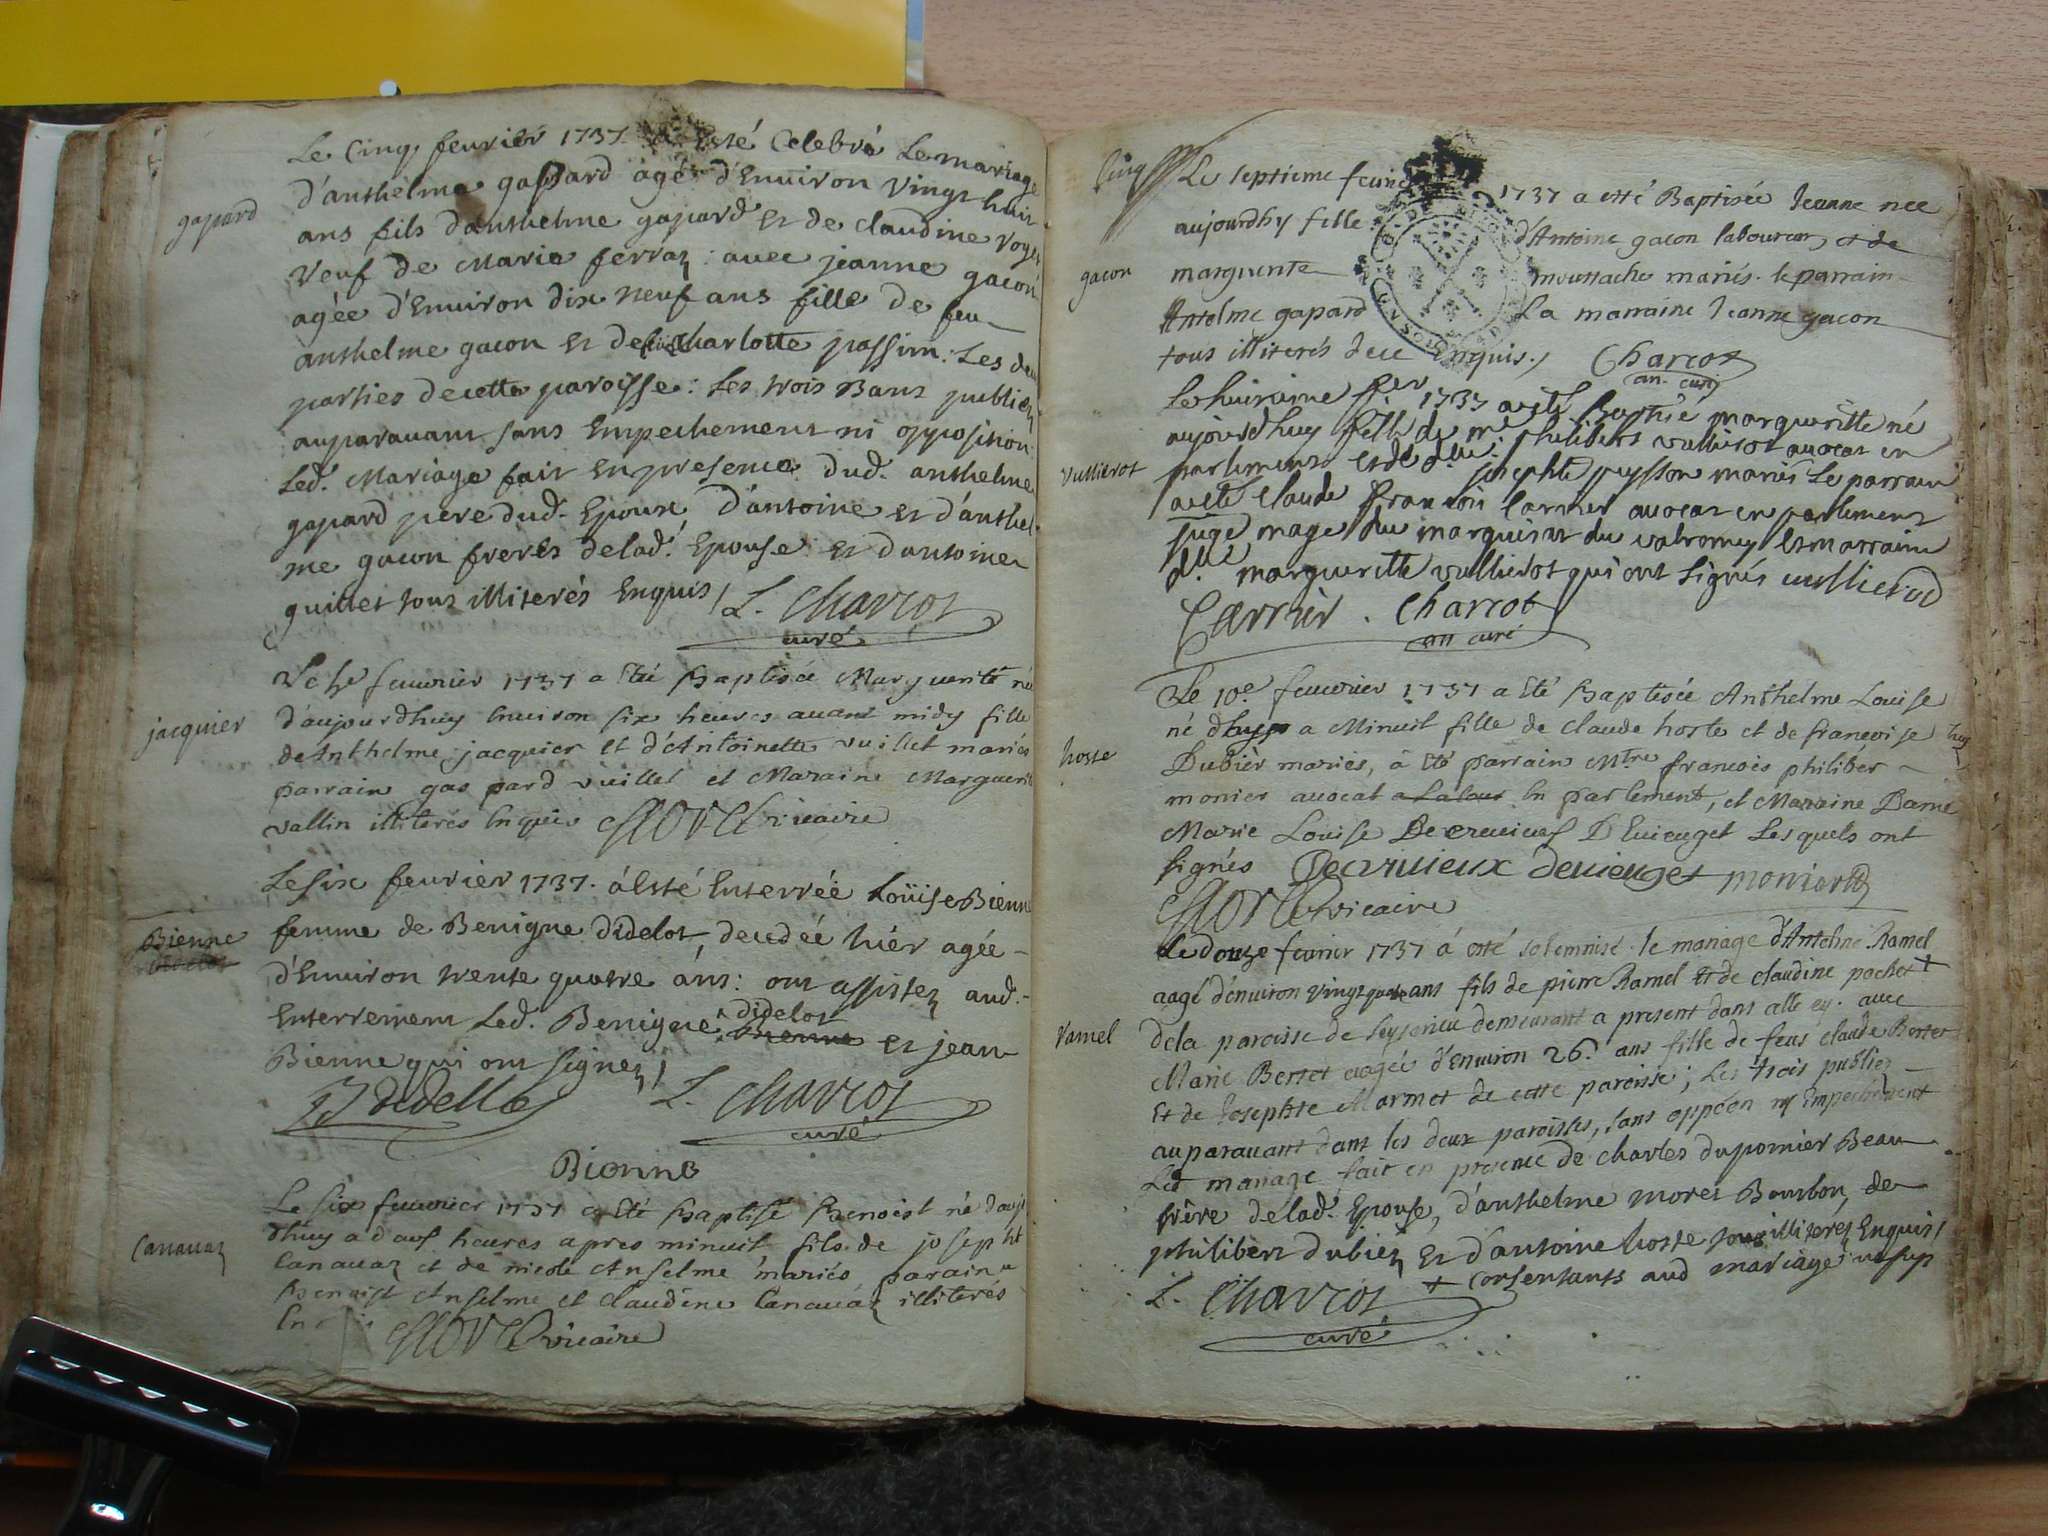 Le Cinq feurier 1737. a Esté Celebré Le mariage
d'anthelme gappard agé d'Enuiron vingt huit
gapard
ans fils d'anthelme gapard et de claudine voyer
veuf de Marie ferraz: auec jeanne gacon
agée d'Enuiron dix neuf ans fille de feu
anthelme gacon et de charlotte passim: Les deux
parties de cette paroisse: Les trois Bans publiez
auparauant sans Empechement ni opposition:
Led. Mariage fait en presence dud. anthelme
gapard pere dud. Epoux d'antoine et d'anthel
me gacon freres delad. Epouse et d'antoine
guillet tous illiterés Enquis/ L. Charcot
curé
Le feuurier 1737 a Eté Baptisée Marguerite né
jacquier
d'aujourdhuy Enuiron six heures auant midy fille
de Anthelme jacquier et d'Antoinette vuillet mariés
parrain gaspard vuillet et Maraine Marguerite
vallin illiterés Enquis vicaire
Le six feurier 1737. á Esté Enterrée Loüise Bienne
Bienne
femme de Benigne Didelot, decedée hiér agée
d'Enuiron trente quatre áns: ont assistez aud.
Enterrement Led. Benigne didelot et jean
Bienne qui ont signez/
B didelot L. Charcot
curé
Bienne
Le six feuurier 1737 a Eté Baptisé Benoist né d'auj
dhuy a d'ouse heures apres minuit fils de joseph
Canauaz
Canauaz et de nicole Anselme mariés parain
Benoist Anselme et claudine Canauaz illiterés
En
vicaire
Cinq Le septieme feurier 1737 a esté Baptisée Jeanne nee
aujourdhy fille d'Antoine gacon laboureur et de
gacon
marguerite moussache mariés. le parrain
Antelme gapard La marraine Jeanne gacon
tous illiterés de ce enquis./ Charcot
an. curé
Le huitaine fer 1737 a eté Baptisé marguerite né
aujourdhuy fille de me philibert vullierot auocat en
vullierot
parlement et de dlle josephte puysson mariés Le parrain
a eté Claude francois Carrier auocat en parlement
juge mage du marquisat du valromey et marraine
dlle marguerite vullierot qui ont signés vullierod
Carrier. Charcot
an curé
Le 10e feuurier 1737 a Eté Baptisée Anthelme Louise
né dhuy a Minuit fille de Claude hoste et de francoise
hoste
Dubier mariés, à Eté parrain Mtre francois philiber
monier auocat en parlement, et Maraine Dame
Marie Louise Decrivieux D Lesquels ont
signés Decrivieux devieuget monier
vicaire
Le douze feurier 1737 á esté solemnisé le mariage d'Antelme Ramel
aagé d'enuiron vingt quatre ans fils de pierre Ramel et de claudine pochet +
ramel
dela paroisse de seyserieu demeurant a present dans alle ey. auec
Marie Bertet aagée d'enuiron 26. ans fille de feus claude Bertet
Et de Josephte Marmet de cette paroisse; Les trois publiez
auparauant dans les deux paroisses, sans oppôon ny Empechement
Led mariage fait en presence de charles dupomier Beau
frère delad. Epouse, d'anthelme moret Bourbon, de
philibert dubiez et d'antoine hoste tous illiterez Enquis/
+ consentants aud mariage
L. Charcot
curé